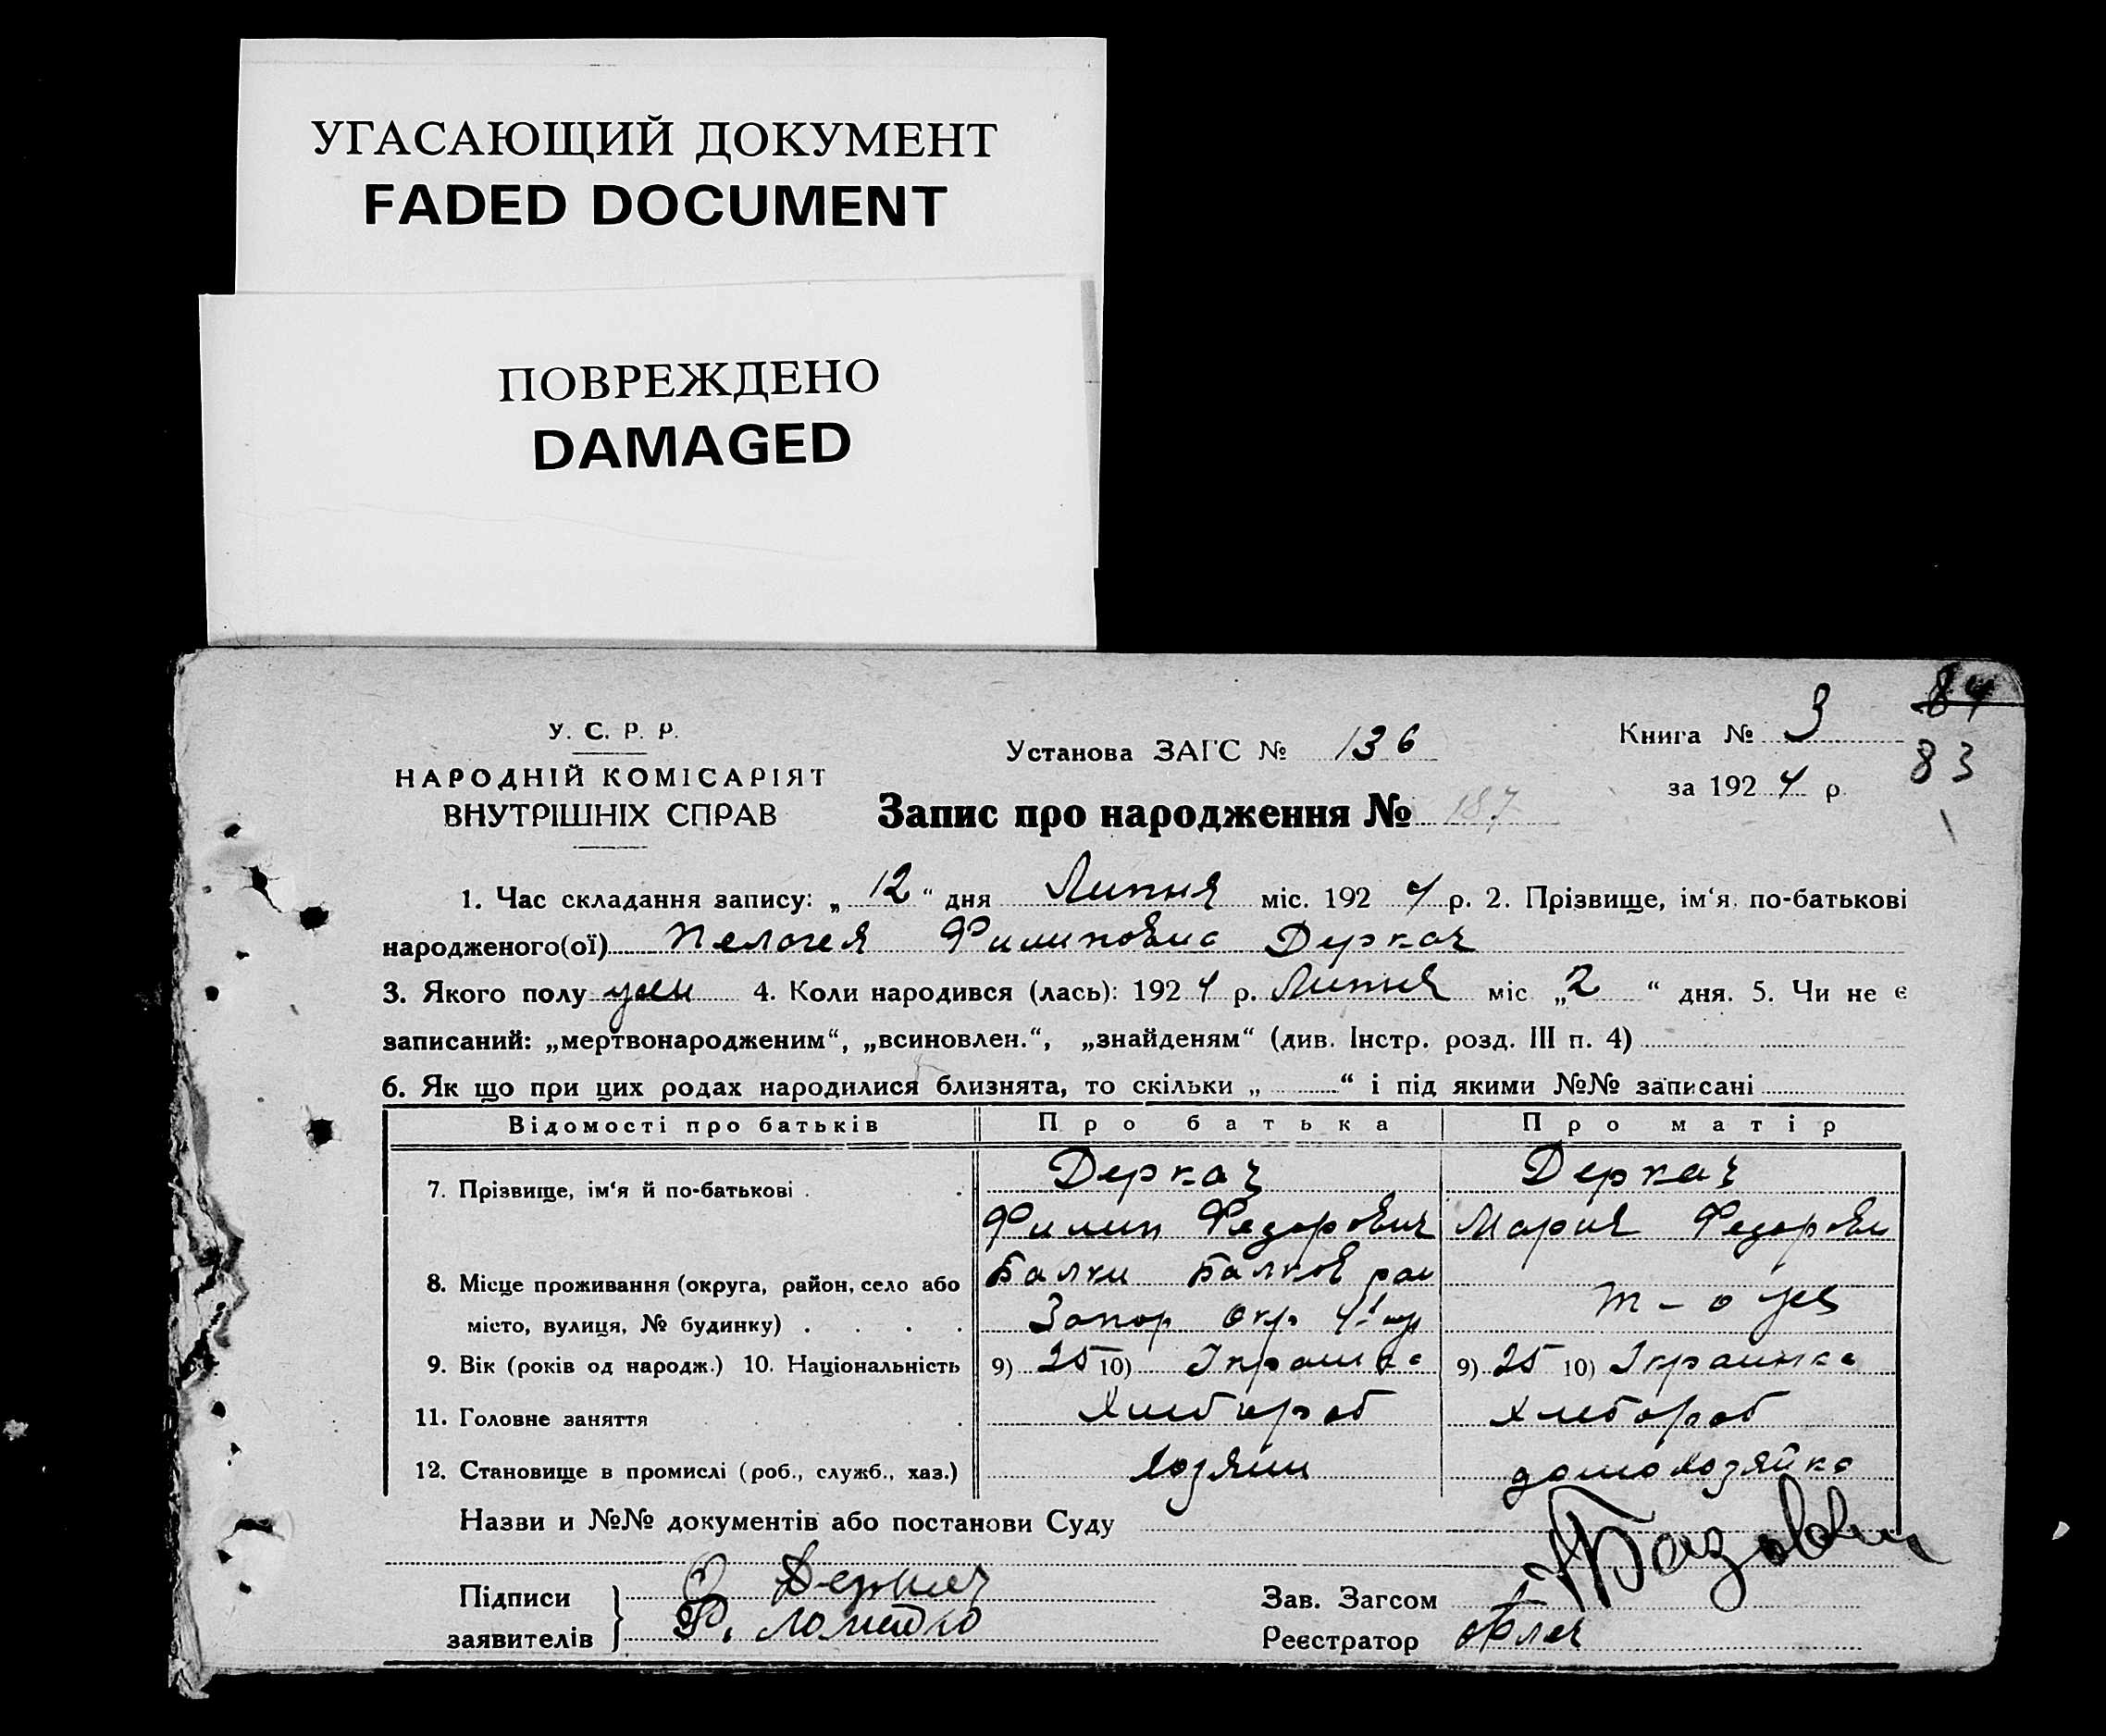 УГАСАЮЩИЙ ДОКУМЕНТ
FADED DOCUMENT
ПОВРЕЖДЕНО
DAMAGED
84
83
У. С. Р. Р.
НАРОДНІЙ КОМІСАРІЯТ
ВНУТРІШНІХ СПРАВ
Установа ЗАГС № 136
Книга № 3
за 1924 р.
Запис про народження № 187
1. Час складання запису: „12“ дня Липня міс. 1924 р. 2. Прізвище, ім‘я, по-батькові
народженого(ої) Пелагея Филиповна Деркач
3. Якого полу жен 4. Коли народився (лась): 1924 р. Липня міс „2“ дня. 5. Чи не є
записаний: „мертвонародженим“, „всиновлен.“, „знайденям“ (див. Інстр. розд. III п. 4)
6. Як що при цих родах народилися близнята, то скільки „ “ і під якими №№ записані
Відомості про батьків Про батька Про матір
7. Прізвище, ім‘я й по-батькові . . Деркач Деркач
Филип Федорович Мария Федоровн
8. Місце проживання (округа, район, село або Балки Балков рай
місто, вулиця, № будинку) . . . . Запор Окр т-о же
9. Вік (років од народж.) 10. Національність 9) 25 10) 9) 25 10) Украинка
11. Головне заняття . . . . Хлебороб Хлебороб
12. Становище в промислі (роб., служб., хаз.) Хозяин домохозяйка
Назви и №№ документів або постанови Суду
Підписи Деркач
заявителів Ф.
Зав. Загсом
Реєстратор